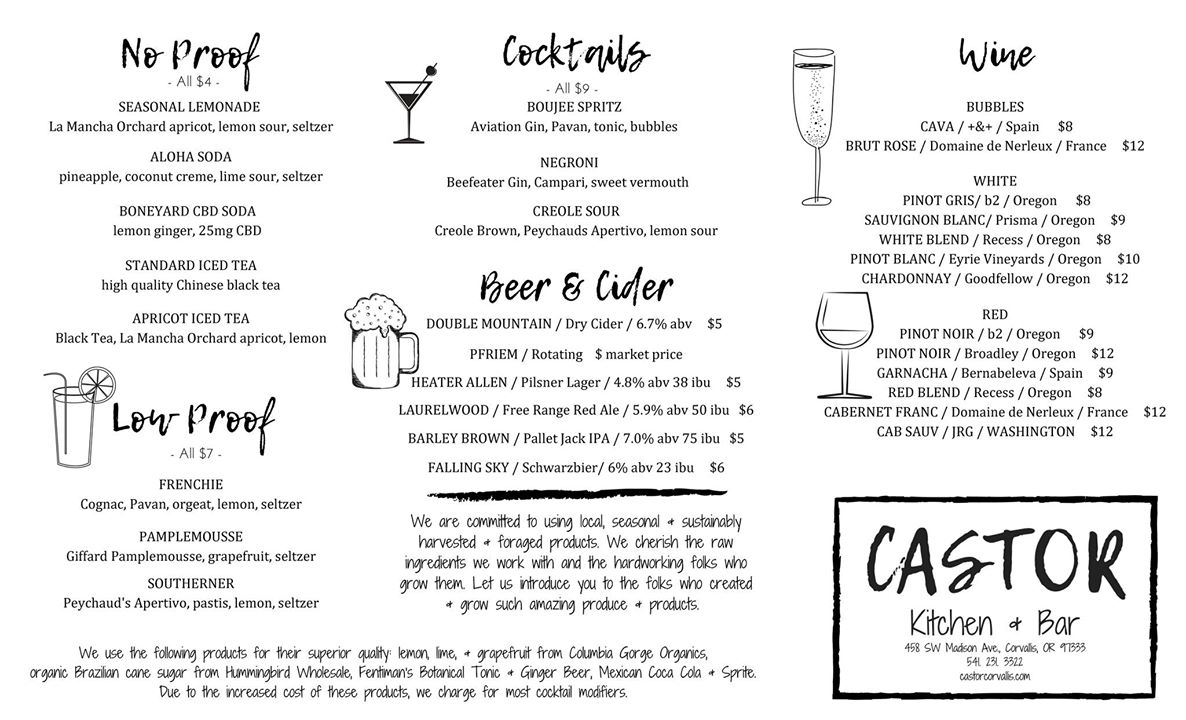 No Proof
- All $4 -
SEASONAL LEMONADE
La Mancha Orchard apricot, lemon sour, seltzer
ALOHA SODA
pineapple, coconut creme, lime sour, seltzer
BONEYARD CBD SODA
lemon ginger, 25mg CBD
STANDARD ICED TEA
high quality Chinese black tea
APRICOT ICED TEA
Black Tea, La Mancha Orchard apricot, lemon
Low Proof
- All $7 -
FRENCHIE
Cognac, Pavan, orgeat, lemon, seltzer
PAMPLEMOUSSE
Giffard Pamplemousse, grapefruit, seltzer
SOUTHERNER
Peychaud's Apertivo, pastis, lemon, seltzer
Cocktails
- All $9 -
BOUJEE SPRITZ
Aviation Gin, Pavan, tonic, bubbles
NEGRONI
Beefeater Gin, Campari, sweet vermouth
CREOLE SOUR
Creole Brown, Peychauds Apertivo, lemon sour
Beer & Cider
DOUBLE MOUNTAIN / Dry Cider / 6.7% abv $5
PFRIEM / Rotating $ market price
HEATER ALLEN / Pilsner Lager / 4.8% abv 38 ibu $5
LAURELWOOD / Free Range Red Ale / 5.9% abv 50 ibu $6
BARLEY BROWN / Pallet Jack IPA / 7.0% abv 75 ibu $5
FALLING SKY / Schwarzbier/ 6% abv 23 ibu $6
We are committed to using local, seasonal & sustainably
harvested & foraged products. We cherish the raw
ingredients we work with and the hardworking folks who
grow them. Let us introduce you to the folks who created
& grow such amazing produce & products.
We use the following products for their superior quality: lemon, lime, & grapefruit from Columbia Gorge Organics,
organic Brazilian cane sugar from Hummingbird Wholesale, Fentiman's Botanical Tonic & Ginger Beer, Mexican Coca Cola & Sprite.
Due to the increased cost of these products, we charge for most cocktail modifiers.
Wine
BUBBLES
CAVA / +&+ / Spain $8
BRUT ROSE / Domaine de Nerleux / France $12
WHITE
PINOT GRIS/ b2 / Oregon $8
SAUVIGNON BLANC/ Prisma / Oregon $9
WHITE BLEND / Recess / Oregon $8
PINOT BLANC / Eyrie Vineyards / Oregon $10
CHARDONNAY / Goodfellow / Oregon $12
RED
PINOT NOIR / b2 / Oregon $9
PINOT NOIR / Broadley / Oregon $12
GARNACHA / Bernabeleva / Spain $9
RED BLEND / Recess / Oregon $8
CABERNET FRANC / Domaine de Nerleux / France $12
CAB SAUV / JRG / WASHINGTON $12
CASTOR
Kitchen & Bar
458 SW Madison Ave., Corvallis, OR 97333
541 231 3322
castorcorvallis.com